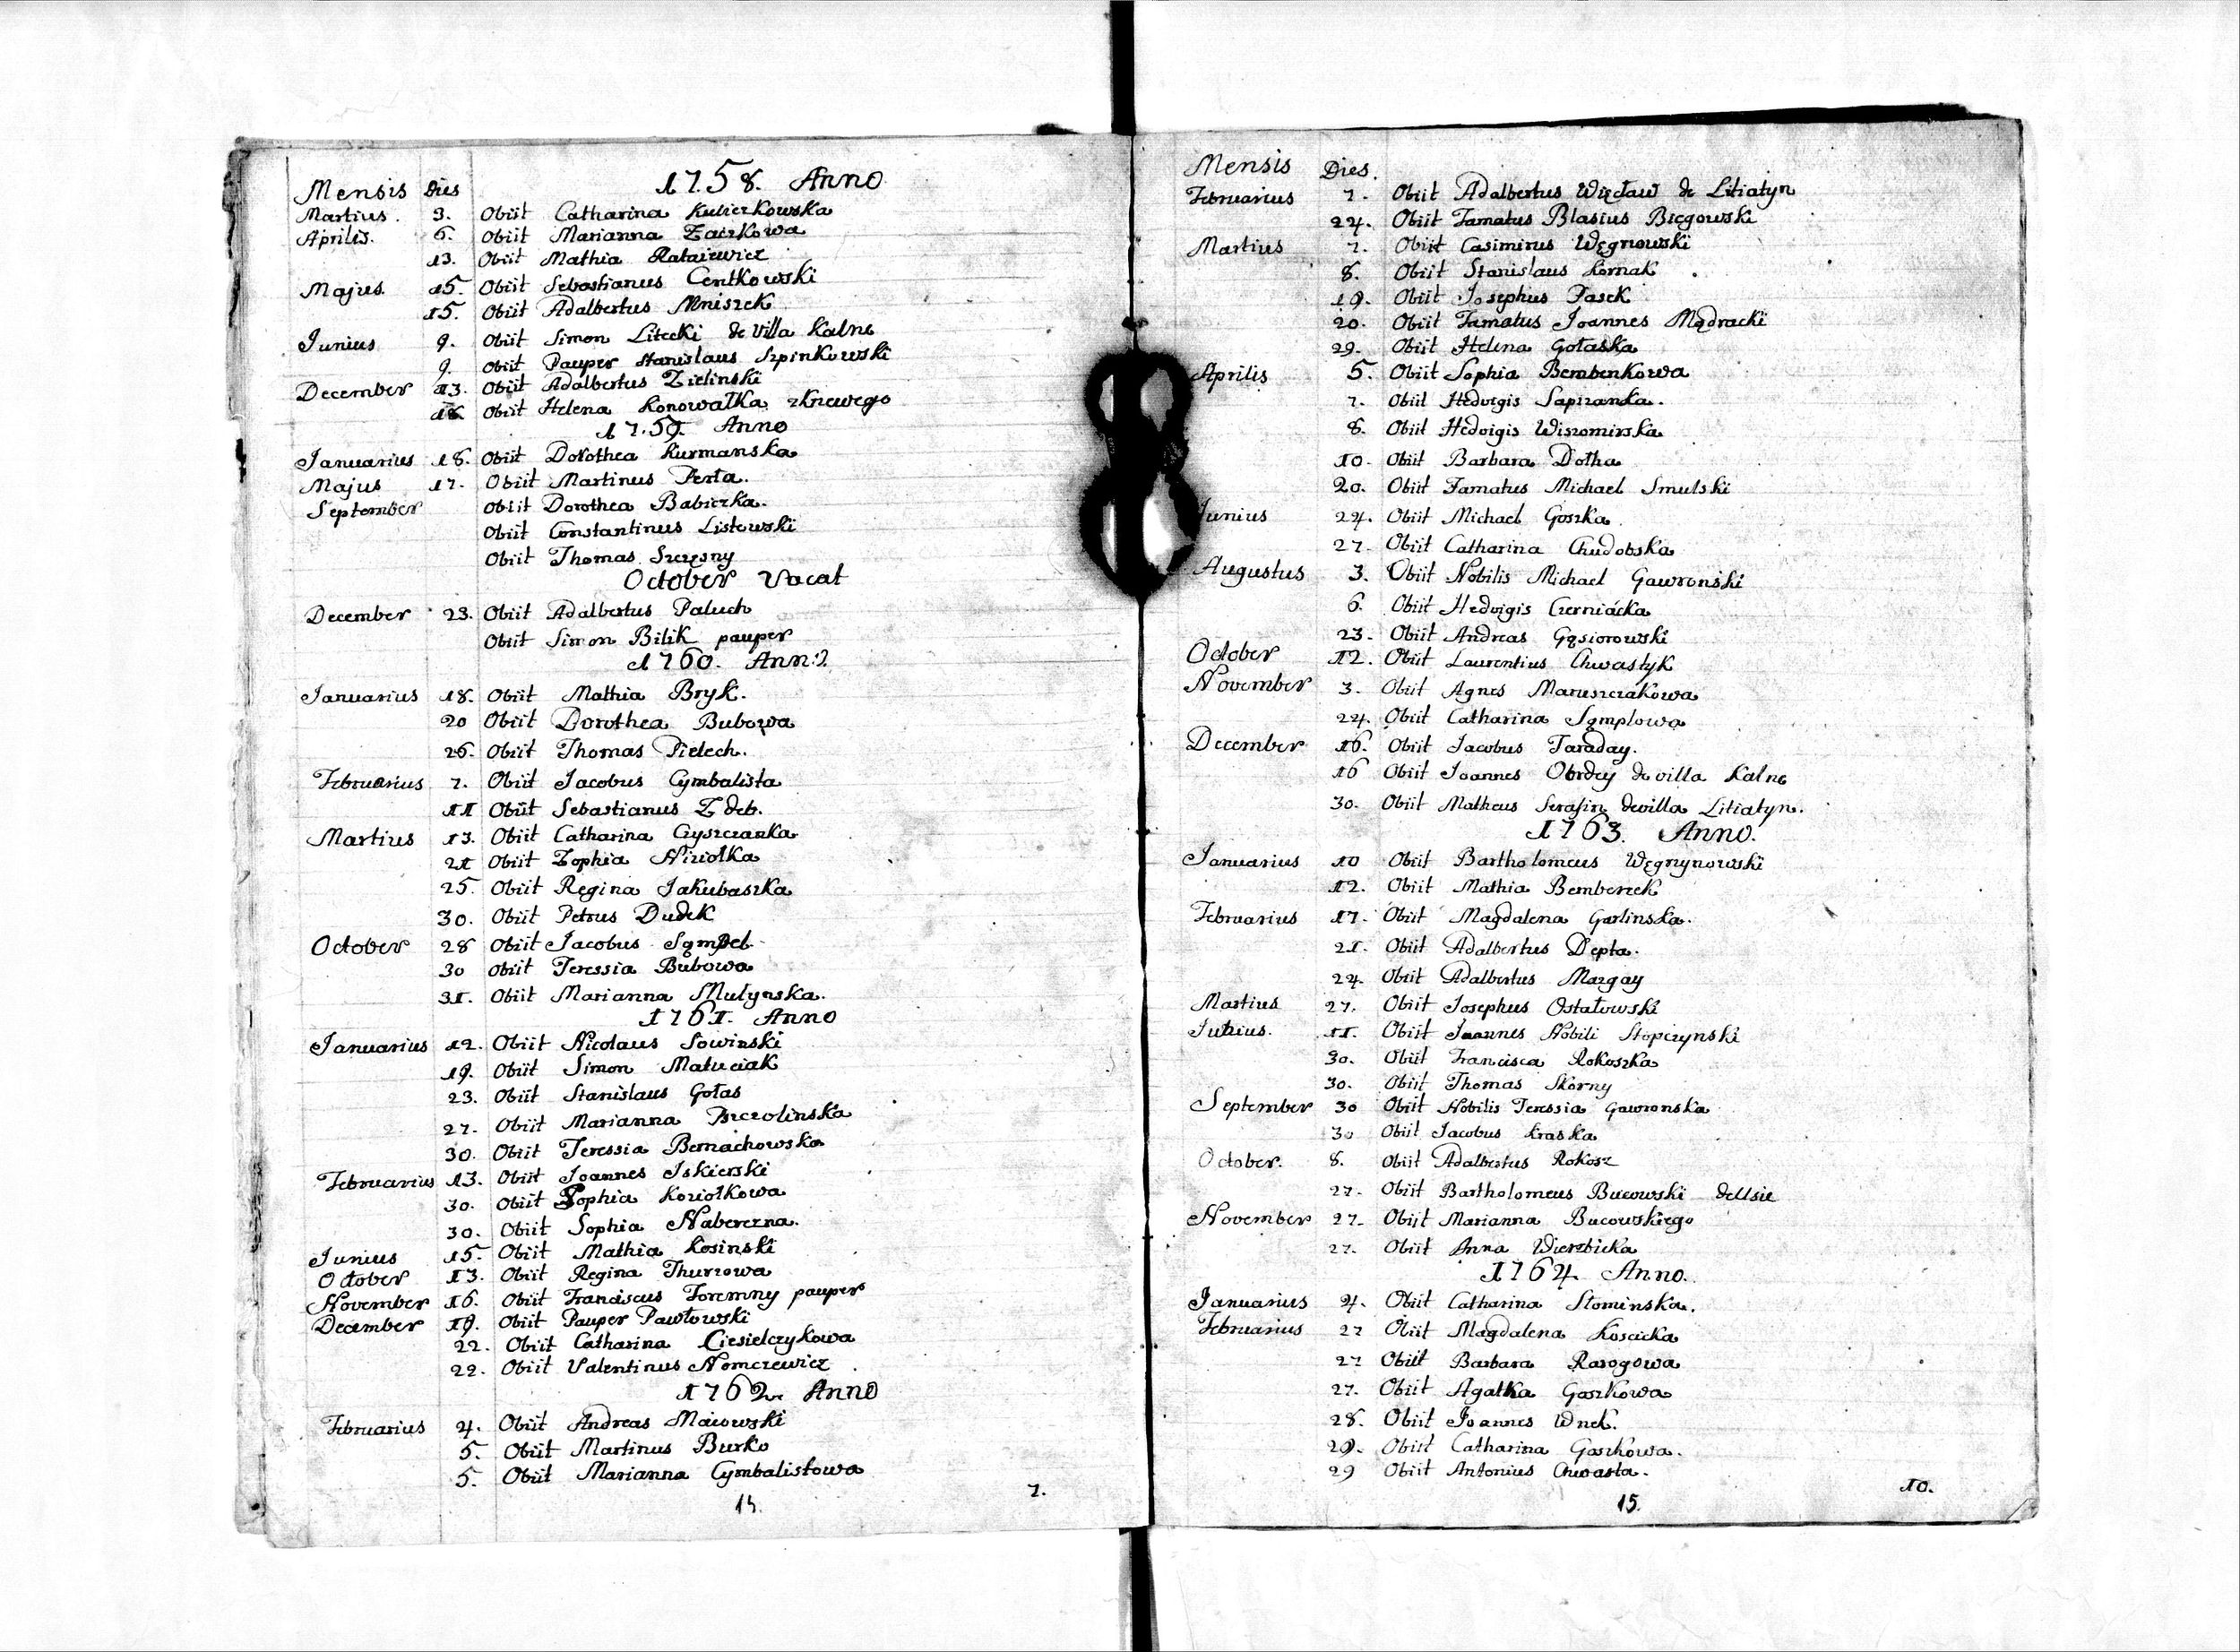 1758. Anno
Mensis Dies
Martius. 3. Obiit Catharina Kulierkowska
Aprilis. 6. Obiit Marianna Zaiszkowa
13. Obiit Mathia Rataiewicz
Majus. 15. Obiit Sebastianus Centkowski
15. Obiit Adalbertus Mniszek
Junius 9. Obiit Simon Litecki de villa Kalne
9. Obiit Pauper Stanislaus Szpinkowski
December 13. Obiit Adalbertus Zielinski
Obiit Helena Konowałka
1759. Anno
Januarius 18. Obiit Dorothea Kurmanska
Majus 17. Obiit Martinus Perła.
September Obiit Dorothea Babiczka.
Obiit Constantinus Listowski
Obiit Thomas Szczęsny
October Vacat
December 23. Obiit Adalbertus Paluch
Obiit Simon Bilik pauper
1760. Anno
Januarius 18. Obiit Mathia Bryk.
20 Obiit Dorothea Bubowa
26. Obiit Thomas Pielech.
Februarius 7. Obiit Jacobus Cymbalista
11 Obiit Sebastianus Zdeb.
Martius 13. Obiit Catharina Czyszczanka
21 Obiit Zophia Niziołka
25. Obiit Regina Jakubaszka
30. Obiit Petrus Dudek
October 28 Obiit Jacobus Sympel
30 Obiit Teressia Bubowa
31. Obiit Marianna Mulynska.
1761. Anno
Januarius 12. Obiit Nicolaus Sowinski
19. Obiit Simon Matuciak
23. Obiit Stanislaus Gołas
27. Obiit Marianna Pszczolinska
30. Obiit Teressia Bernachowska
Februarius 13. Obiit Joannes Iskierski
30. Obiit Sophia Koziołkowa
30. Obiit Sophia Naberezna.
Junius 15. Obiit Mathia Kosinski
October 13. Obiit Regina Thurzowa
November 16. Obiit Franciscus Foremny pauper
December 19. Obiit Pauper Pawłowski
22. Obiit Catharina Ciesielczykowa
22. Obiit Valentinus Nomczewicz
1762. Anno
Februarius 4. Obiit Andreas Maiowski
5. Obiit Martinus Burko
5. Obiit Marianna Cymbalistowa
7.
14.
Mensis Dies.
Februarius 7. Obiit Adalbertus Więcław de Litiatyn
24. Obiit Famatus Blasius Biegowski
Martius 7. Obiit Casimirus Węgnowski
8. Obiit Stanislaus Kornak
19. Obiit Josephus Pasek
20. Obiit Famatus Joannes Mądracki
29. Obiit Helena Gołaska
Aprilis 5. Obiit Sophia Bembenkowa
7. Obiit Hedvigis Sapiranka.
8. Obiit Hedvigis Wiszomirska
10. Obiit Barbara Dołha
20. Obiit Famatus Michael Smulski
Junius 24. Obiit Michael Goszka.
27. Obiit Catharina Chudobska
Augustus 3. Obiit Nobilis Michael Gawronski
6. Obiit Hedvigis Czerniácka
23. Obiit Andreas Gąsiorowski
October 12. Obiit Laurentius Chwastyk
November 3. Obiit Agnes Maruszczakowa
24. Obiit Catharina Symplowa
December 16. Obiit Jacobus Faraday.
16 Obiit Joannes de villa Kalne
30. Obiit Matheus Serafin de villa Litiatyn.
1763. Anno.
Januarius 10 Obiit Bartholomeus Węgrynowski
12. Obiit Mathia Bemberzek
Februarius 17. Obiit Magdalena Garlinska.
21. Obiit Adalbertus Depta.
24. Obiit Adalbertus Margay
Martius 27. Obiit Josephus Ostałowski
Junius. 11. Obiit Joannes Nobili Stopczynski
30. Obiit Francisca Rokoszka
30. Obiit Thomas Skorny
September 30 Obiit Nobilis Teressia Gawronska
30 Obiit Jacobus Kraska
October. 8. Obiit Adalbertus Rokosz
27. Obiit Bartholomeus Bucowski
November 27. Obiit Marianna Bucowskiego
27. Obiit Anna Wierzbicka
1764. Anno.
Januarius 4. Obiit Catharina Słominska.
Februarius 27 Obiit Magdalena Koscicka
27 Obiit Barbara Rarogowa
27. Obiit Agatka Goszkowa
28. Obiit Joannes Wnek.
29. Obiit Catharina Goszkowa.
29 Obiit Antonius Chwasta.
10.
15.